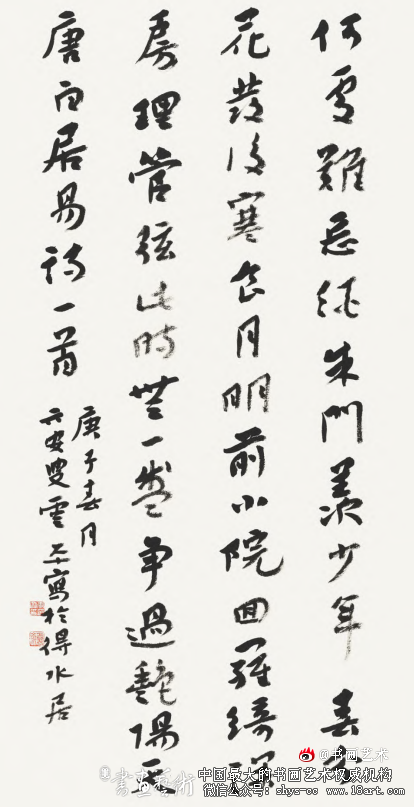 何處難忘酒朱門羨少年春分
花發後寒食月明前小院囬羅綺深
房理管弦此時無一盞爭過艷陽天
唐白居易詩一首
庚子春月
六安叟雲寫於得水居
@书画艺术
書畫藝術
中国最大的书画艺术权威机构
微信公众号:shys-cc www.18art.com